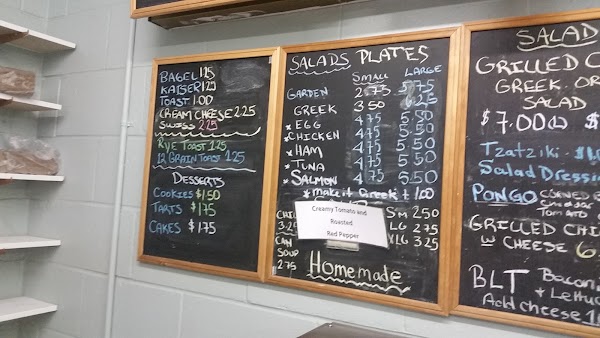 BAGEL 1.25
KAISER 1.25
TOAST 1.00
CREAM CHEESE 2.25
SWISS 2.25
RYE TOAST 1.25
12 GRAIN TOAST 1.25
DESSERTS
COOKIES $1.50
TARTS $1.75
CAKES $1.75
SALADS PLATES
SMALL LARGE
GARDEN 2.75 5.75
GREEK 3.50 6.25
* EGG 4.75 5.50
* CHICKEN 4.75 5.50
* HAM 4.75 5.50
* TUNA 4.75 5.50
* SALMON 4.75 5.50
* make it Greek + 1.00
SM 2.50
LG 2.75
XLG 3.25
CAN
SOUP
2.75
Creamy Tomato and
Roasted
Red Pepper
Homemade
SALAD
GRILLED C
GREEK OR
SALAD
$7.00
Tzatziki
Salad Dressin
PONGO CORNED
TOMATO
GRILLED CHI
W CHEESE 6.
BLT Bacon
+ Lettuc
Add cheese 1